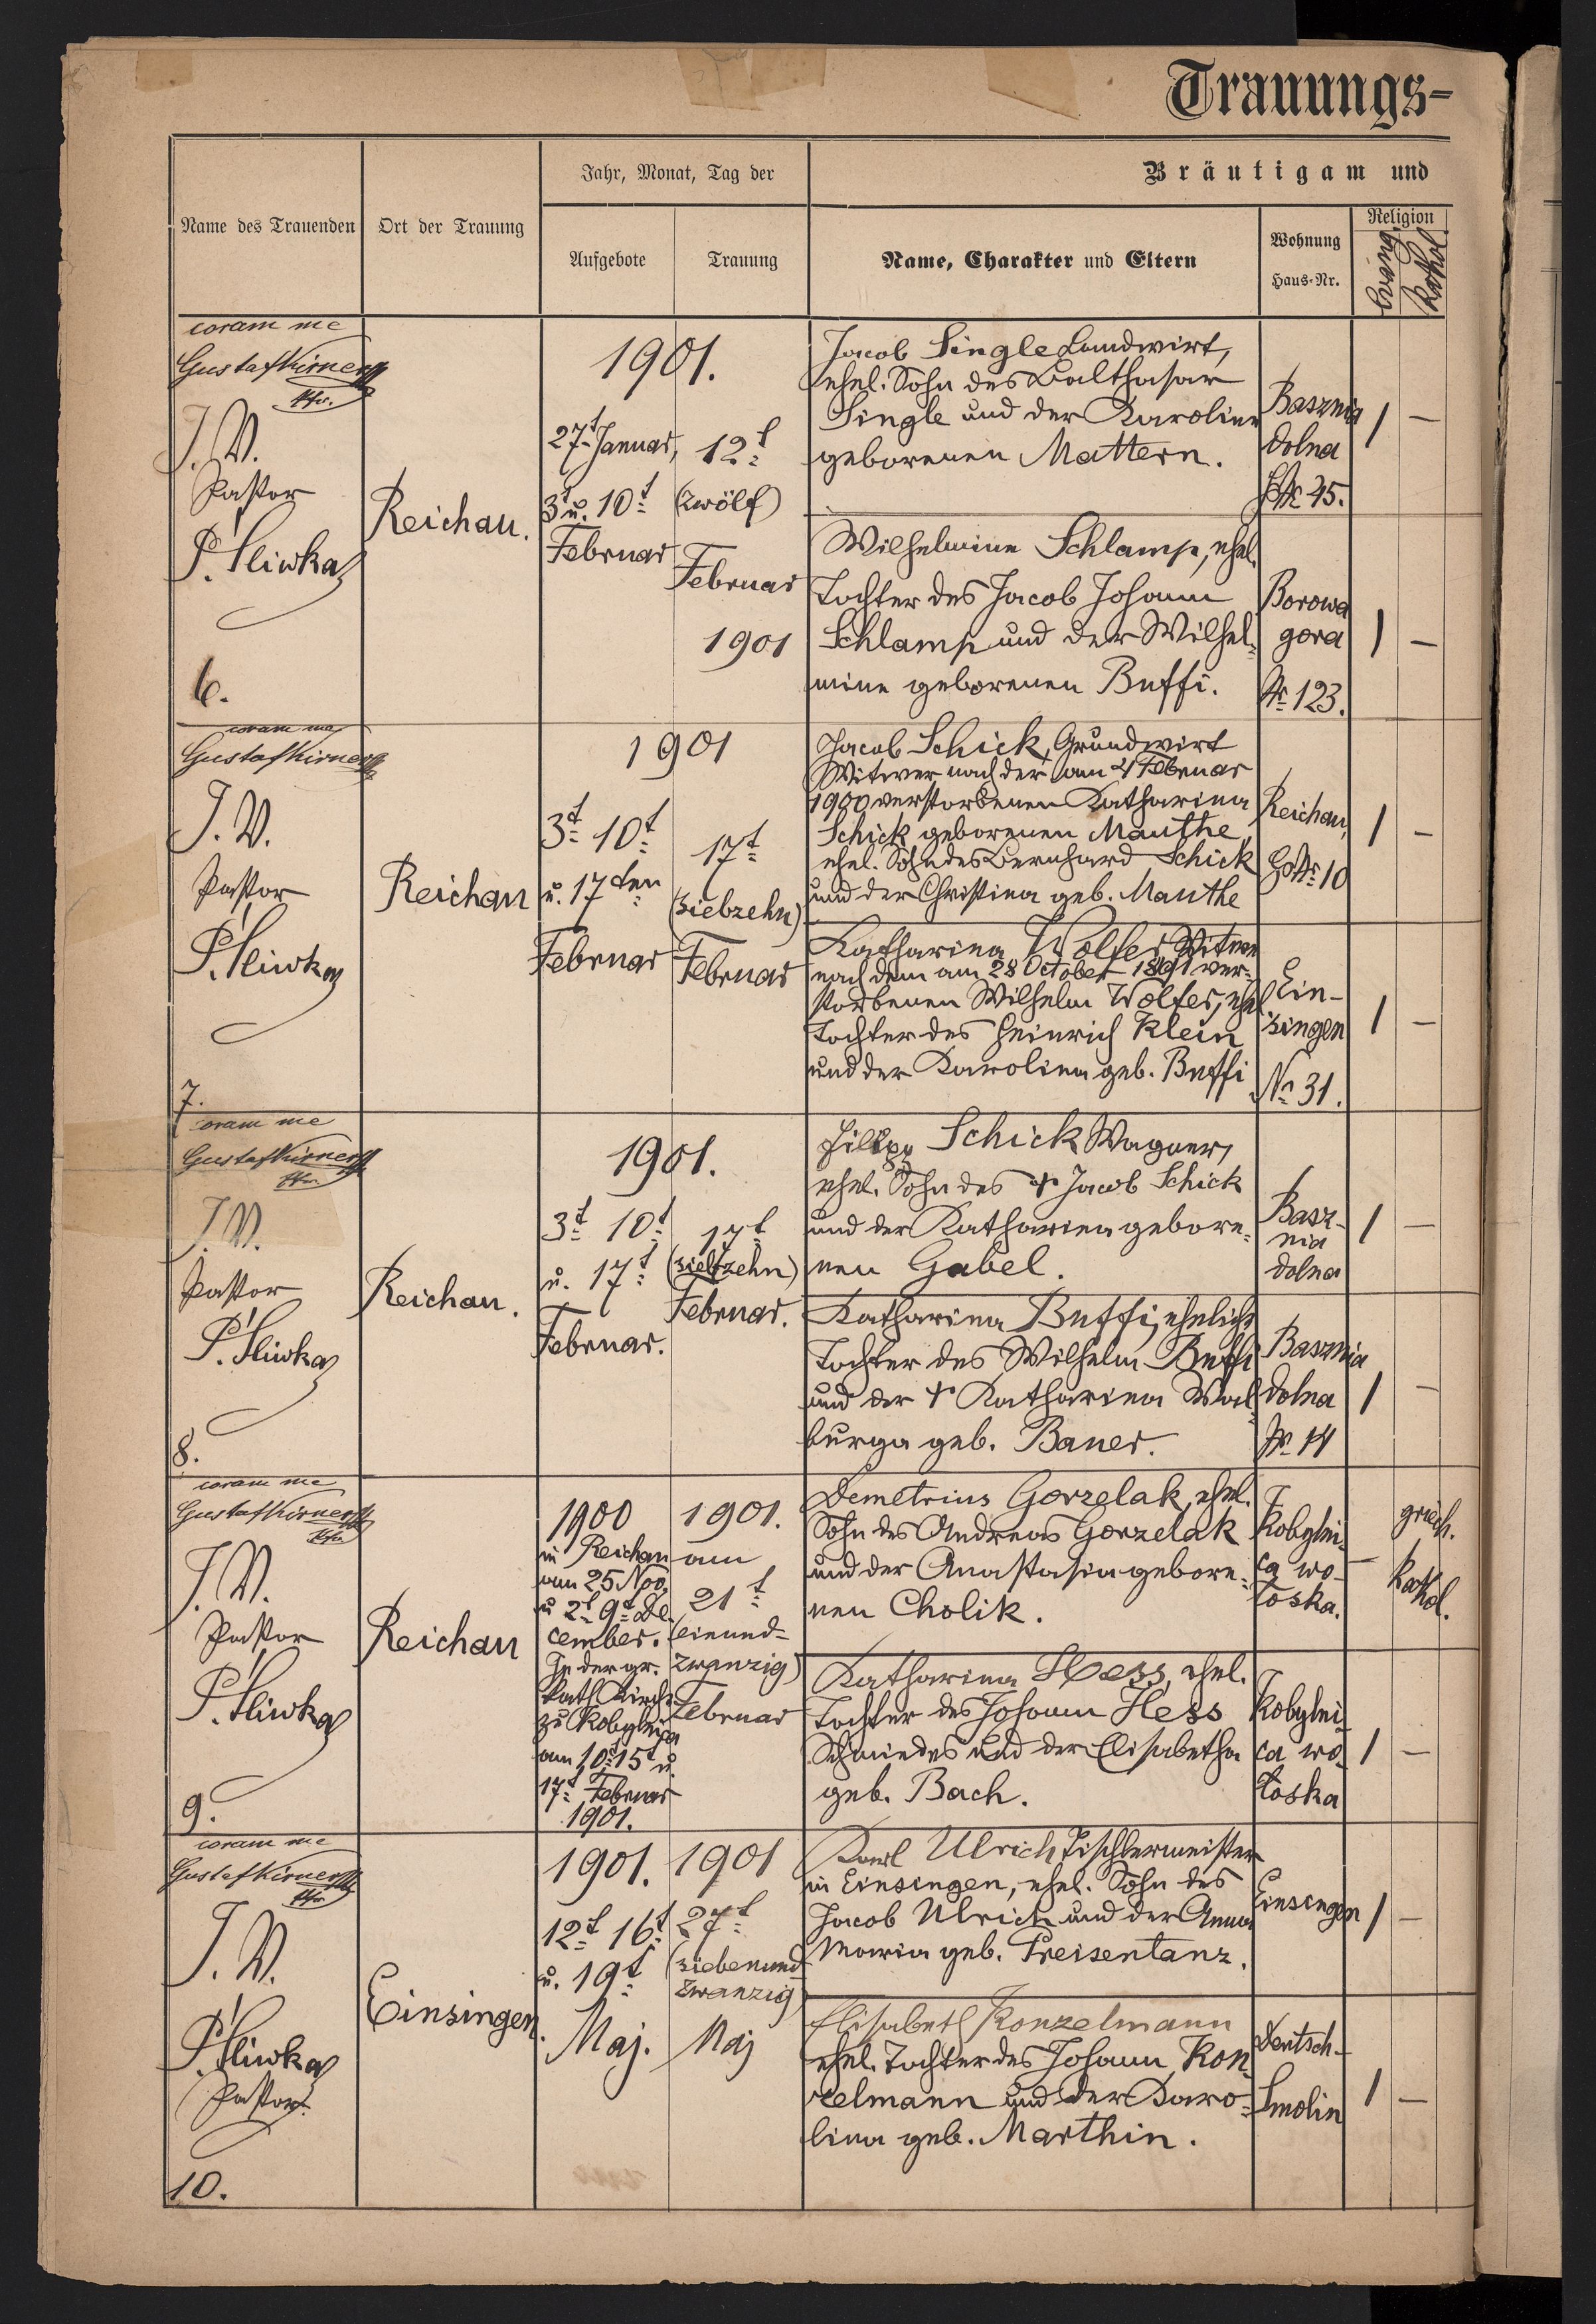 Trauungs-
Name des Trauenden
Ort der Trauung
Jahr, Monat, Tag der
Aufgebote
Trauung
Bräutigam und
Name, Charakter und Eltern
Wohnung
Haus-Nr.
Religion
Evang.
Kathol.
coram me
Gustaf Kirner
Pfr.
J. V.
Pastor
P. Śliwka
6.
Reichau.
1901.
27t Januar,
3t u. 10t
Februar
12t
(zwölf)
Februar
1901
Jacob Single Landwirt,
ehel. Sohn des Balthasar
Single und der Karoline
geborenen Mattern.
Basznia
dolna
HNr 45.
1 —
Wilhelmine Schlamp, ehel.
Tochter des Jacob Johann
Schlamp und der Wilhel-
mine geborenen Buffi.
Borowa
gora
Nr 123.
1 —
coram me
Gustaf Kirner
J. V.
Pastor
P. Śliwka
7.
Reichau
1901
3t 10t
u. 17ten
Februar
17t
(siebzehn)
Februar
Jacob Schick, Grundwirt
Witwer nach der am 4 Februar
1900 verstorbenen Katharina
Schick geborenen Mauthe,
ehel. Sohn des Bernhard Schick
und der Christina geb. Mauthe
Reichau,
HNr 10
1 —
Katharina Wolfer Witwe
nach dem am 28 October 1891 ver-
storbenen Wilhelm Wolfer, ehel
Tochter des Heinrich Klein
und der Karolina geb. Buffi
Ein-
singen
No 31.
1 —
coram me
Gustaf Kirner
Pfr.
J. V.
Pastor
P. Śliwka
8.
Reichau.
1901.
3t 10t
u. 17t
Februar.
17t
(siebzehn)
Februar.
Filipp Schick Wagner,
ehel. Sohn des † Jacob Schick
und der Katharina gebore-
nen Gabel.
Basz-
nia
dolna
1 —
Katharina Buffi, eheliche
Tochter des Wilhelm Buffi
und der † Katharina Wal-
burga geb. Bauer.
Basznia
dolna
Nr 14
1 —
coram me
Gustaf Kirner
Pfr.
J. V.
Pastor
P. Śliwka
9.
Reichau
1900
in Reichau
am 25 Nov.
u 2t 9t De-
cember.
In der gr.
kath Kirche
zu Kobylnica
am 10t 15t u.
17t Februar
1901.
1901.
am
21t
(einund-
zwanzig)
Februar
Demetrius Gorzelak, ehel.
Sohn des Andreas Gorzelak
und der Anastasia gebore-
nen Cholik.
Kobylni-
ca wo-
łoska.
—
griech.
Kathol.
Katharina Hess, ehel.
Tochter des Johann Hess
Schmiedes und der Elisabetha
geb. Bach.
Kobylni-
ca wo-
łoska
1 —
coram me
Gustaf Kirner
Pfr
J. V.
P. Śliwka
Pastor.
10.
Einsingen.
1901.
12t 16t
u. 19t
Maj.
1901
27t
(siebenund-
zwanzig)
Maj
Karl Ulrich Tischlermeister
in Einsingen, ehel. Sohn des
Jacob Ulrich und der Anna
Maria geb. Preisentanz.
Einsingen
1 —
Elisabeth Konzelmann
ehel. Tochter des Johann Kon-
zelmann und der Karo-
lina geb. Marthin.
Deutsch-
Smolin
1 —